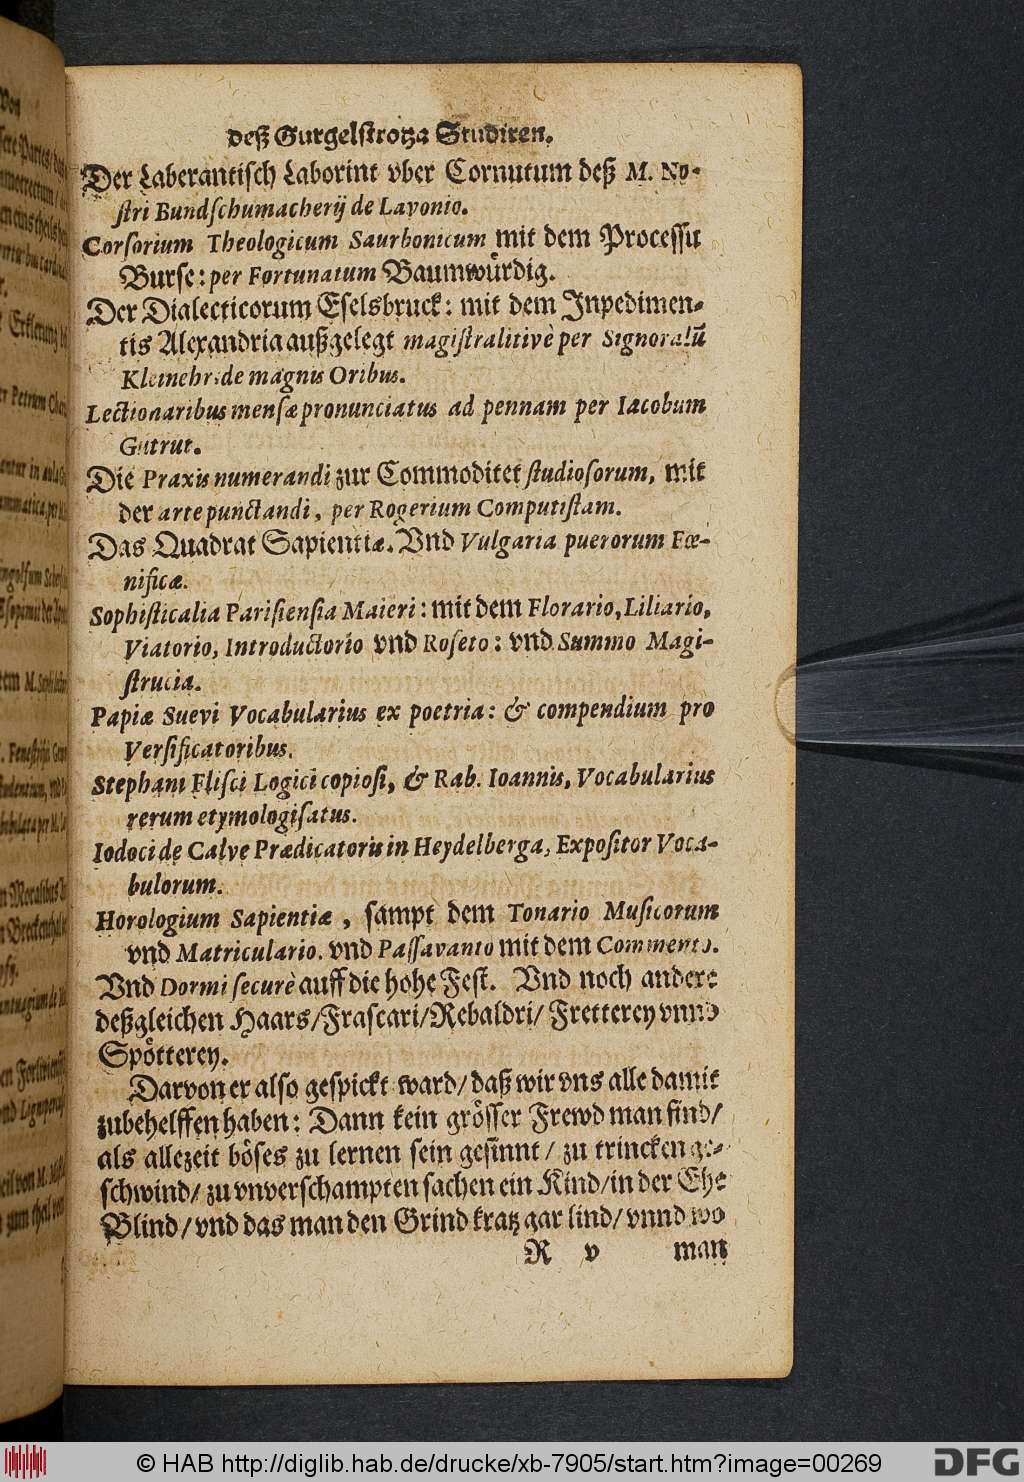 deß Gurgelstrotza Studiren.
Der Laberantisch Laborint vber Cornutum deß M. No-
stri Bundschumacherij de Lavonio.
Corsorium Theologicum Saurbonicum mit dem Processu
Burse: per Fortunatum Baumwürdig.
Der Dialecticorum Eselsbruck: mit dem Inpedimen-
tis Alexandria außgelegt magistralitivè per Signoralũ
de magnis Oribus.
Lectionaribus mensæ pronunciatus ad pennam per Iacobum
Gutrut.
Die Praxis numerandi zur Commoditet studiosorum, mit
der arte punctandi, per Rogerium Computistam.
Das Quadrat Sapientiæ. Vnd Vulgaria puerorum Fœ-
nificæ.
Sophisticalia Parisiensia Maieri: mit dem Florario, Liliario,
Viatorio, Introductorio vnd Roseto: vnd Summo Magi-
strucia.
Papiæ Suevi Vocabularius ex poetria: & compendium pro
Versificatoribus.
Stephani Flisci Logici copiosi, & Rab. Ioannis, Vocabularius
rerum etymologisatus.
Iodoci de Calve Prædicatoris in Heydelberga, Expositor Voca-
bulorum.
Horologium Sapientiæ, sampt dem Tonario Musicorum
vnd Matriculario. vnd Passavanto mit dem Commento.
Vnd Dormi securè auff die hohe Fest. Vnd noch andere
deßgleichen Haars/Frascari/Rebaldri/ Fretterey vnnd
Spötterey.
Darvon er also gespickt ward/ daß wir vns alle damit
zubehelffen haben: Dann kein grösser Frewd man find/
als allezeit böses zu lernen sein gesinnt / zu trincken ge-
schwind/ zu vnverschampten sachen ein Kind/ in der Ehe
Blind/ vnd das man den Grind kratz gar lind/ vnnd wo
R v man
© HAB http://diglib.hab.de/drucke/xb-7905/start.htm?image=00269
DFG